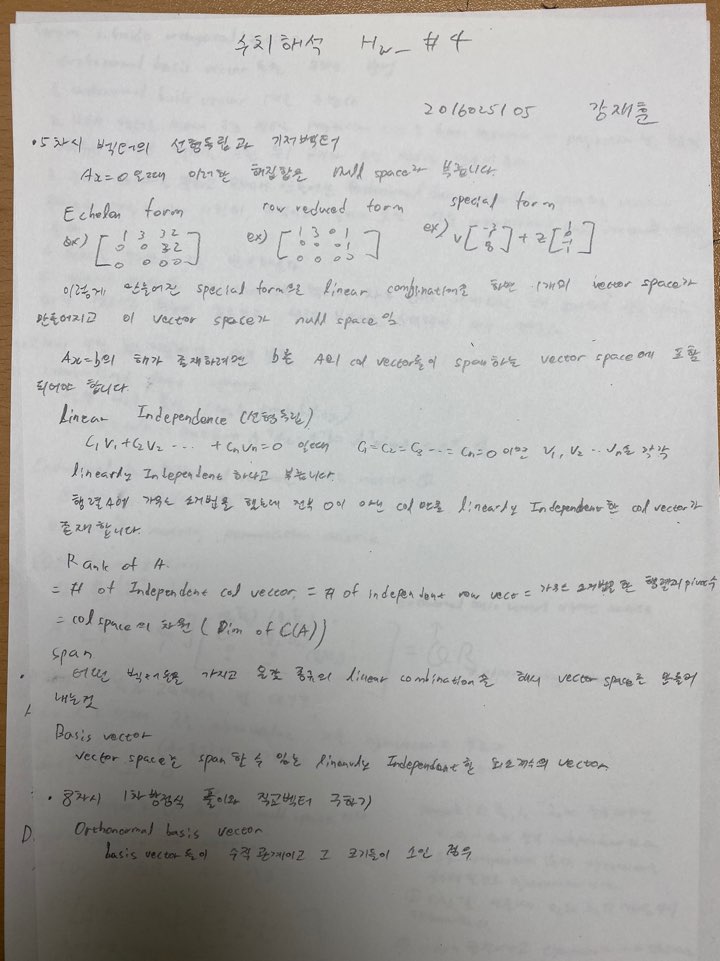 수치해석 Hw_ #4
2016025105 강재훈
• 5차시 벡터의 선형독립과 기저벡터
Ax=0 일때 이러한 해집합을 null space라 부릅니다.
Echelon form row reduced form special form
ex) [1 3 3 2
0 0 3 2
0 0 0 0] ex) [1 3 0 1
0 0 0 1
0 0 0 0] ex) v[-3
0] + z[
]
이렇게 만들어진 special form으로 linear combination을 하면 1개의 vector space가
만들어지고 이 vector space가 null space 임
Ax=b의 해가 존재하려면 b는 A의 col vector들이 span하는 vector space에 포함
되어야 합니다.
Linear Independence (선형독립)
C₁V₁+C₂V₂ ... +CnVn=0 일때 C₁=C₂=C₃ ... = Cn=0 이면 V₁, V₂ ... Vn을 각각
linearly Independent 하다고 부릅니다.
행렬 A에 가우스 소거법을 했는데 전부 0이 아닌 col 만큼 linearly Independent한 col vector가
존재합니다.
Rank of A.
= # of Independent col vector. = # of independent row vector = 가우스 소거법을 한 행렬의 pivot수
= col space의 차원 (Dim of C(A))
span
• 어떤 벡터들을 가지고 온갖 종류의 linear combination을 해서 vector space를 만들어
내는것
Basis vector
vector space를 span 할 수 있는 linearly Independent한 최소개수의 vector
• 8차시 1차방정식 풀이와 직교벡터 구하기
D. Orthonormal basis vector
basis vector들이 수직 관계이고 그 크기들이 1인 경우